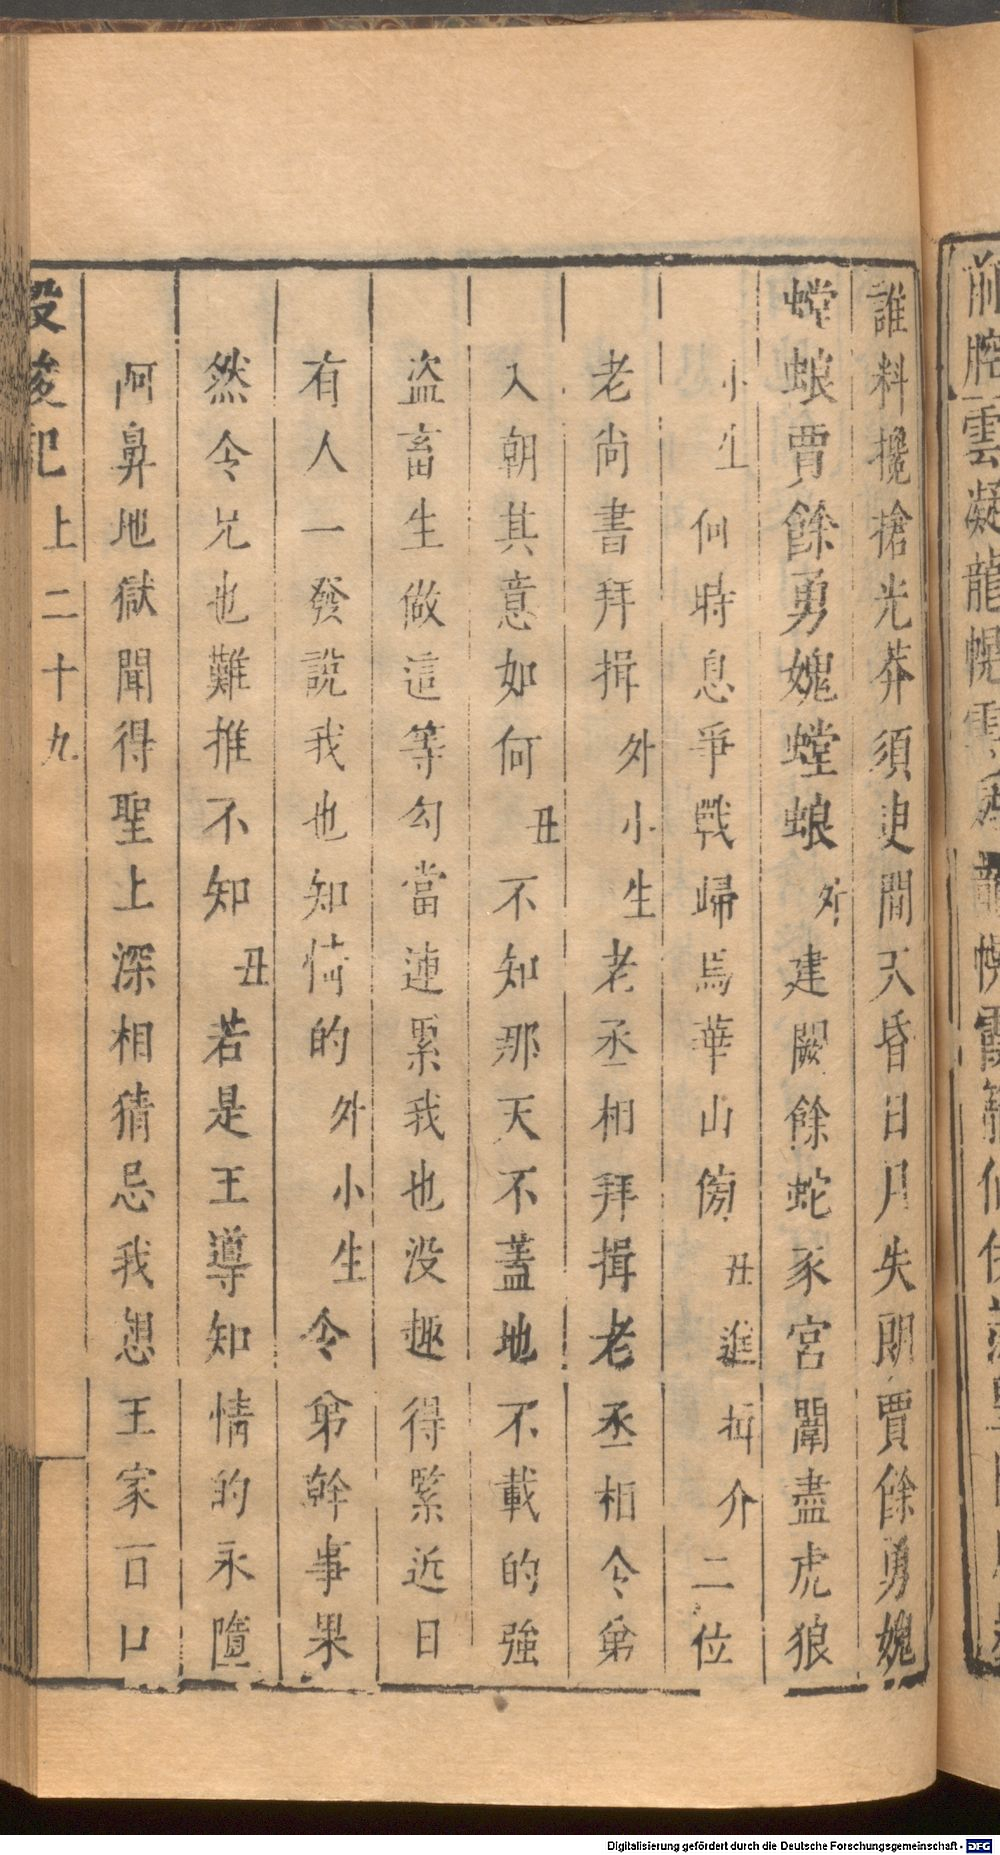 誰料攙搶光莽須臾間天昏日月失朗賈餘勇媿
螳蜋賈餘勇媿螳蜋外建闕餘蛇豕宮闈盡虎狼
小生何時息爭戰歸馬華山傍丑進揖介二位
老尚書拜揖外小生老丞相拜揖老丞相令弟
入朝其意如何丑不知那天不蓋地不載的強
盜畜生做這等勾當連累我也没趣得緊近日
有人一發說我也知情的外小生令弟幹事果
然令兄也難推不知丑若是王導知情的永墮
阿鼻地獄聞得聖上深相猜忌我想王家百口
投梭記 上二十九
前腔雲凝龍幌
Digitalisierung gefördert durch die Deutsche Forschungsgemeinschaft - DFG